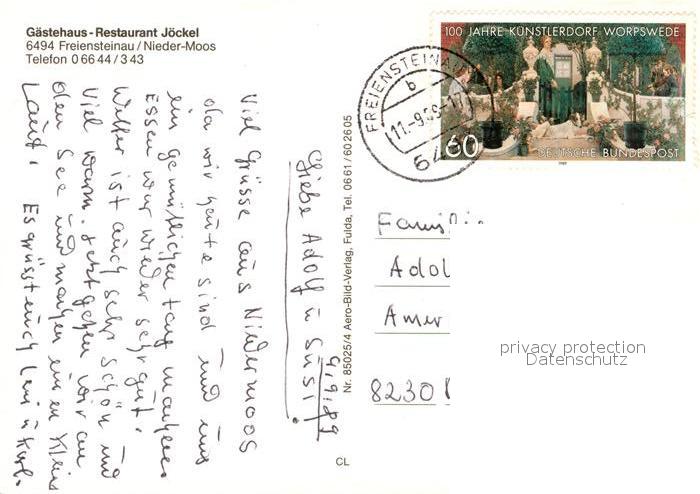 Gästehaus-Restaurant Jöckel
6494 Freiensteinau/Nieder-Moos
Telefon 06644/343
9.9.89
Liebe Adolf u Susi.
Viel Grüsse aus Niedermoos
da wir heute sind und uns
ein gemütlichen tag machen.
Essen war wieder sehr gut.
Wetter ist auch sehr schön und
viel warm. Jetzt gehen wir an
den See und machen einen klein
Lauf. Es grüsst euch u Karl.
Nr. 85025/4 Aero-Bild-Verlag, Fulda, Tel. 0661/602605
CL
100 JAHRE KÜNSTLERDORF WORPSWEDE
60
DEUTSCHE BUNDESPOST
1989
FREIENSTEINAU
b
11.-9.89-17
64
Adol
Amer
8230
privacy protection
Datenschutz